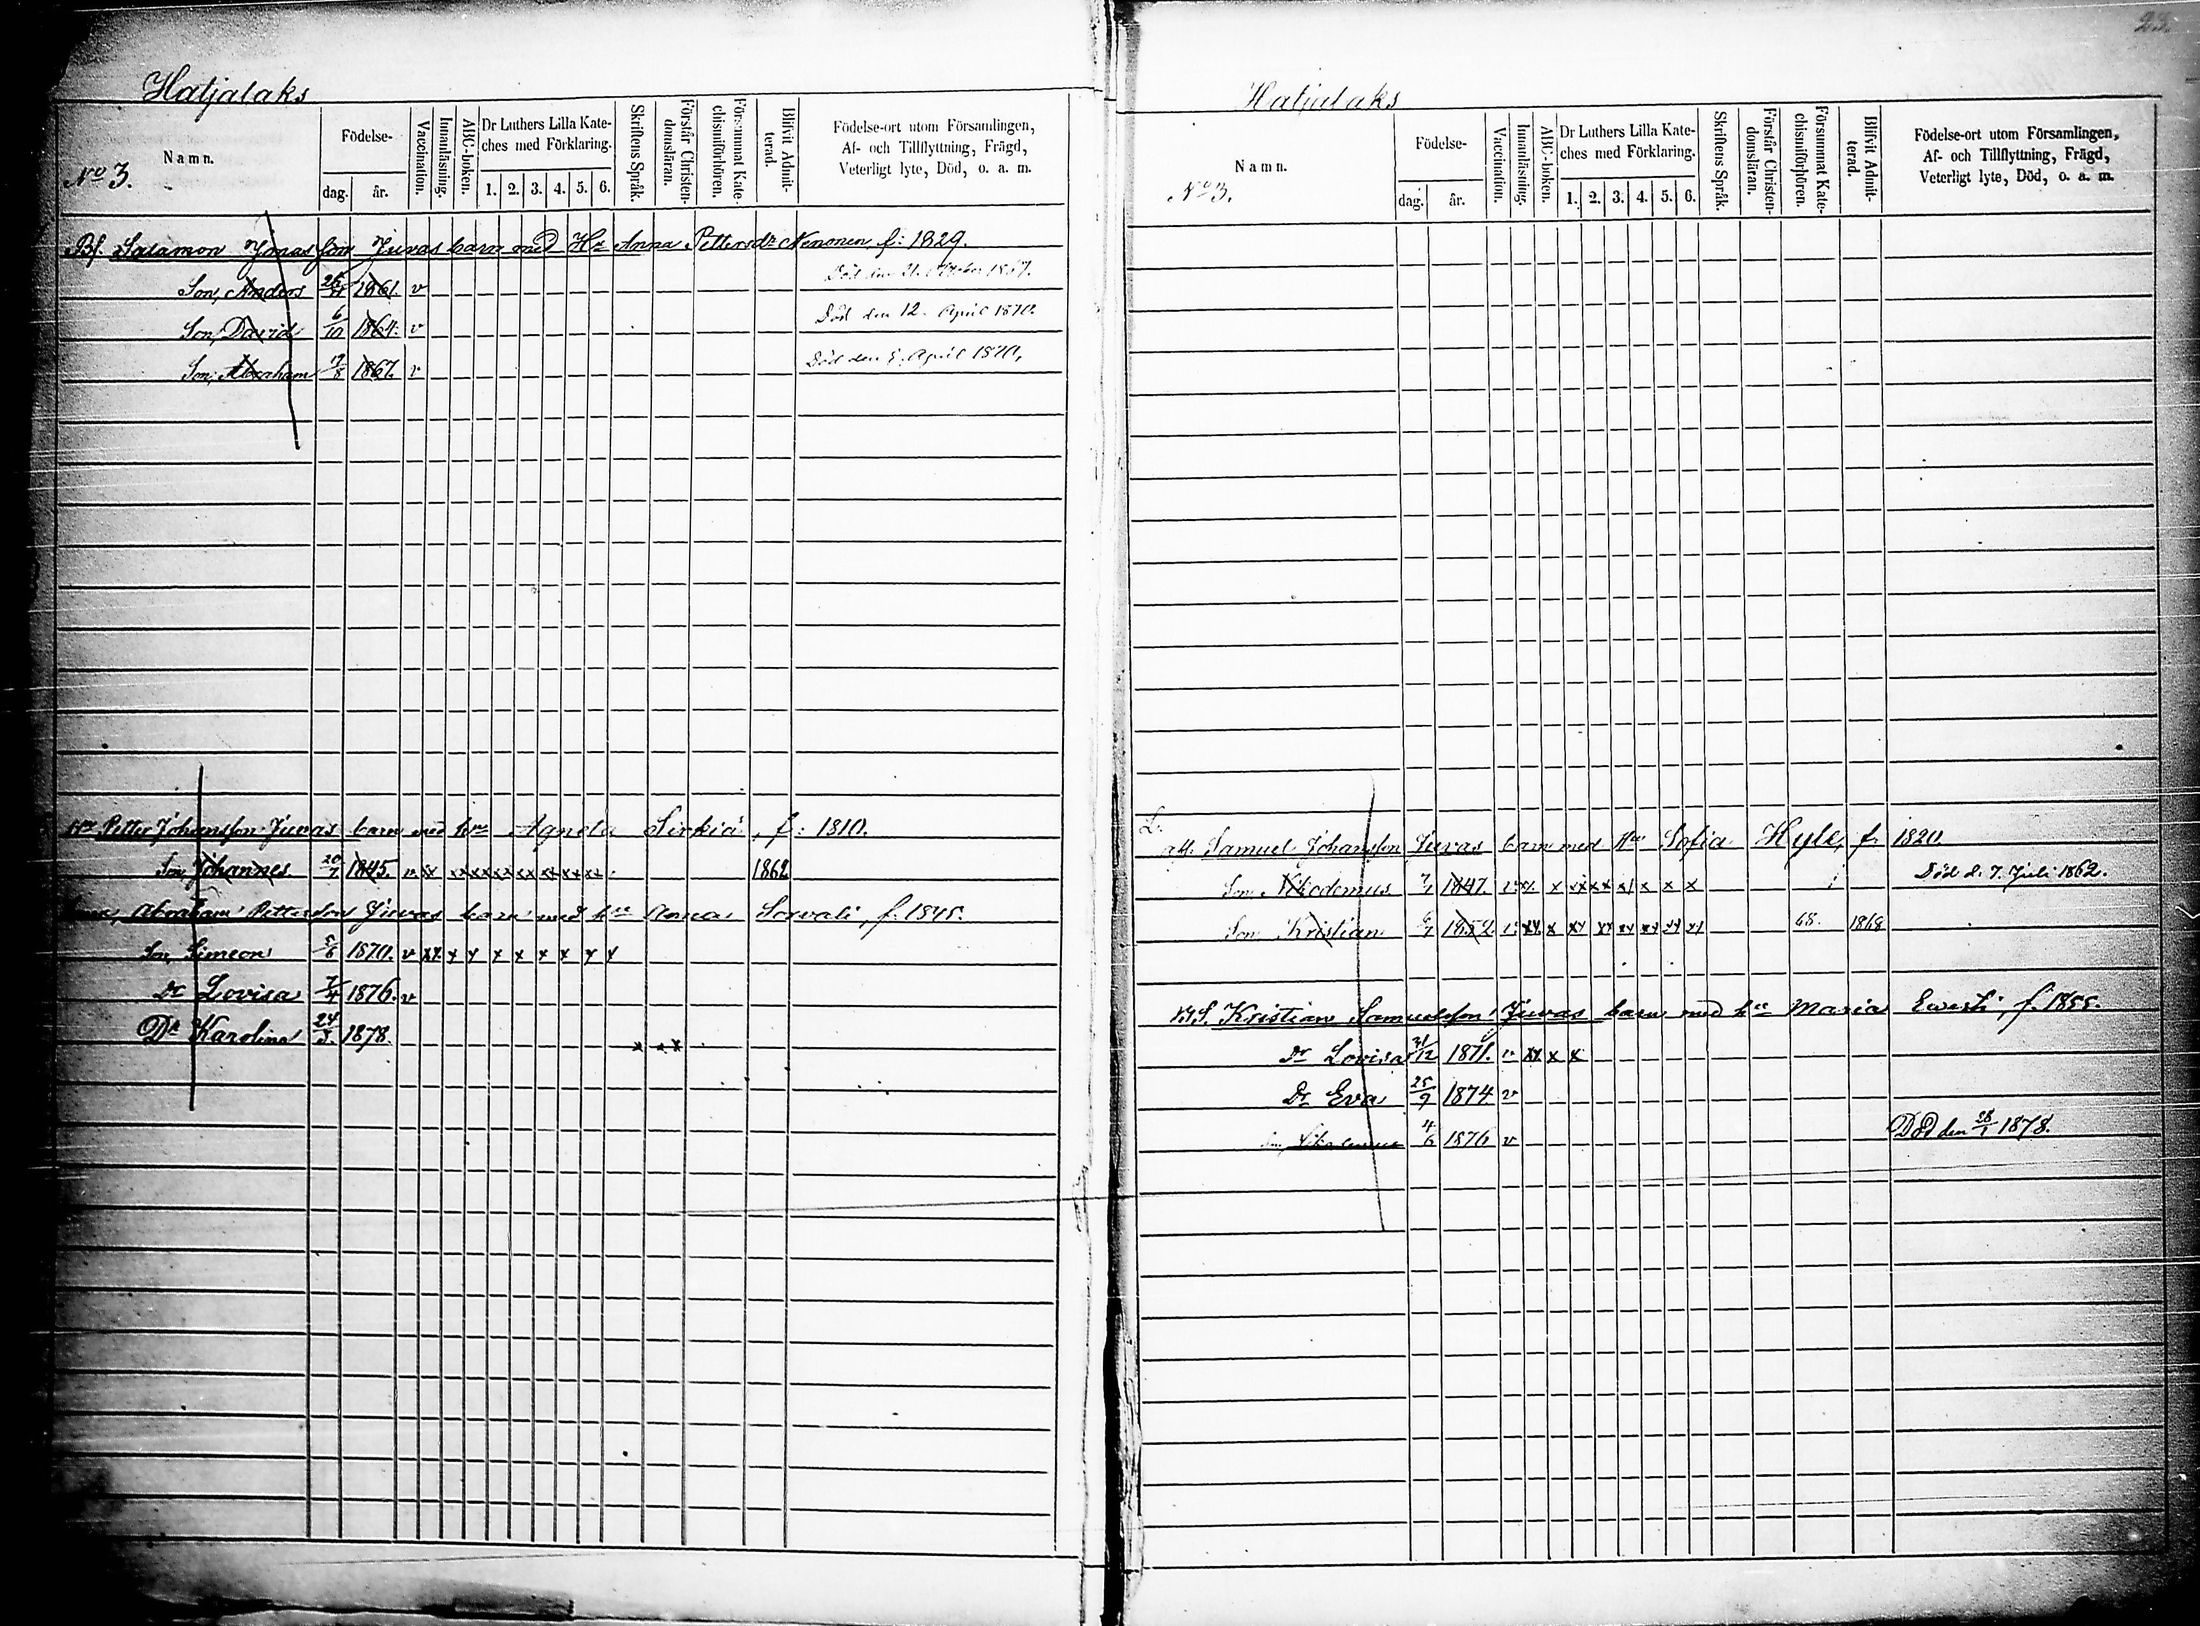 Hatjalaks
No 3.
Namn.
Födelse-
dag. år.
Vaccination.
Innanläsning.
ABC-boken.
Dr Luthers Lilla Kate-
ches med Förklaring.
1. 2. 3. 4. 5. 6.
Skriftens Språk.
Förstår Christen-
domsläran.
Försummat Kate-
chismiförhören.
Blifvit Admit-
terad.
Födelse-ort utom Församlingen,
Af- och Tillflyttning, Frägd,
Veterligt lyte, Död, o. a. m.
Bf. Salamon Jonasson Juvas barn med Hu Anna Pettersdr Nenonen f: 1829.
Son, Anders 1861. v Död den 21. October 1867.
Son, David 6/10 1864. v Död den 12. April 1870.
Son, Abraham 1867. v Död den April 1870.
Petter Johansson Juvas barn med hu Agneta Sirkiä, f: 1810.
Son, Johannes 20/7 1845. v xx xx xx xx xx xx xx 1862
Abraham Pettersson Juvas barn med hu Anna Sorvali, f: 1845.
Son, Simeon 5/6 1870. v xx x x x x x x x x
Dr Lovisa 7/4 1876. v
Dr Karolina 24/3 1878. x x x
23.
Hatjalaks
No 3.
Namn.
Födelse-
dag. år.
Vaccination.
Innanläsning.
ABC-boken.
Dr Luthers Lilla Kate-
ches med Förklaring.
1. 2. 3. 4. 5. 6.
Skriftens Språk.
Förstår Christen-
domsläran.
Försummat Kate-
chismiförhören.
Blifvit Admit-
terad.
Födelse-ort utom Församlingen,
Af- och Tillflyttning, Frägd,
Veterligt lyte, Död, o. a. m.
L.
Samuel Johansson Juvas barn med Hu Sofia Hyle, f: 1820.
Son Nikodemus 1847. v xx x xx xx x x x x Död d. 7. Juli 1862.
Son Kristian 1852. v xx x xx xx xx xx xx xx 68. 1868
Kristian Samuelsson Juvas barn med hu Maria Ewesti, f. 1855.
Dr Lovisa 31/12 1871. v xx x x
Dr Eva 25/9 1874 v
4/6 1876 v Död den 28/1 1878.